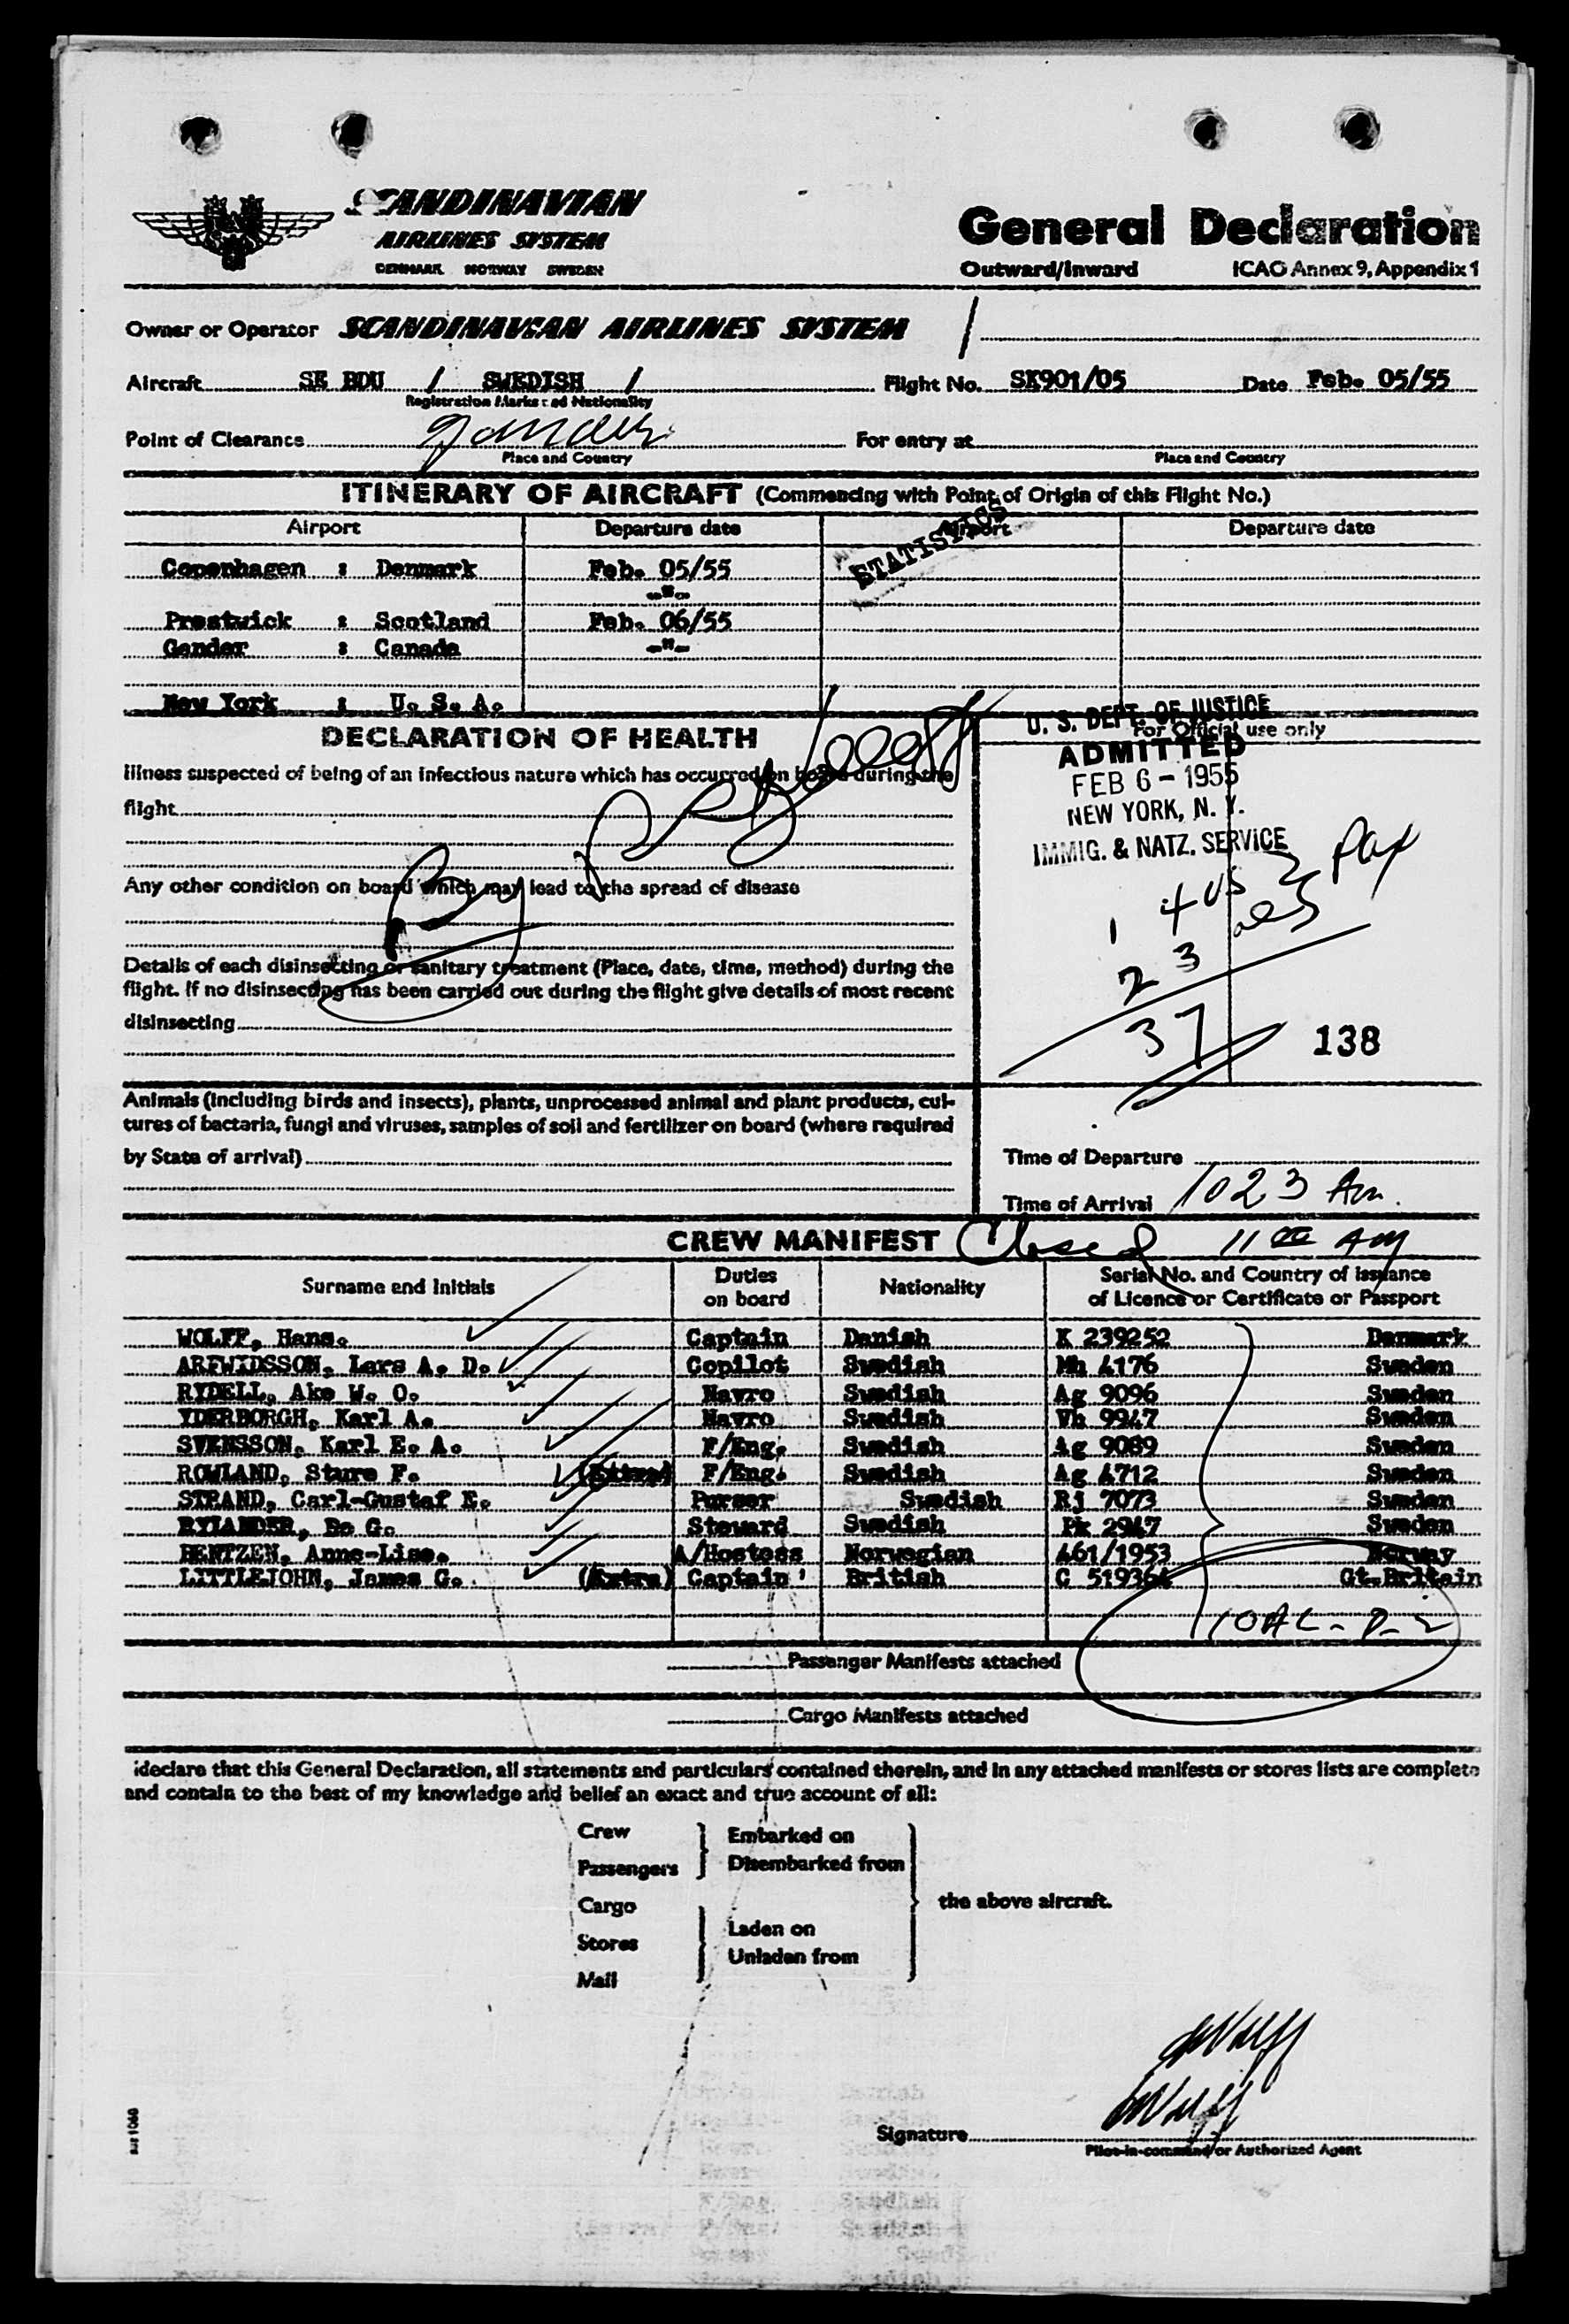 SCANDINAVIAN
AIRLINES SYSTEM
DENMARK NORWAY SWEDEN
General Declaration
Outward/Inward ICAO Annex 9, Appendix 1
Owner or Operator SCANDINAVIAN AIRLINES SYSTEM /
Aircraft SE BDU / SWEDISH / Flight No. SK901/05 Date Feb. 05/55
Registration Marks and Nationality
Point of Clearance Gander For entry at
Place and Country Place and Country
ITINERARY OF AIRCRAFT (Commencing with Point of Origin of this Flight No.)
Airport Departure date Airport Departure date
STATISTICS
Copenhagen : Denmark Feb. 05/55
-"-
Prestwick : Scotland Feb. 06/55
Gander : Canada -"-
New York : U. S. A.
DECLARATION OF HEALTH
Illness suspected of being of an infectious nature which has occurred on board during the
flight
Any other condition on board which may lead to the spread of disease
Details of each disinsecting or sanitary treatment (Place, date, time, method) during the
flight. If no disinsecting has been carried out during the flight give details of most recent
disinsecting
For Official use only
U. S. DEPT. OF JUSTICE
ADMITTED
FEB 6 - 1955
NEW YORK, N. Y.
IMMIG. & NATZ. SERVICE
14 US Pax
23
37
138
Animals (including birds and insects), plants, unprocessed animal and plant products, cul-
tures of bacteria, fungi and viruses, samples of soil and fertilizer on board (where required
by State of arrival)
Time of Departure
Time of Arrival 1023 Am.
CREW MANIFEST Closed 11 00 AM
Surname and Initials Duties on board Nationality Serial No. and Country of issuance of Licence or Certificate or Passport
WOLFF, Hans. Captain Danish K 239252 Denmark
ARFWIDSSON, Lars A. D. Copilot Swedish Mh 4176 Sweden
RYDELL, Ake W. O. Navro Swedish Ag 9096 Sweden
YDERBORGH, Karl A. Navro Swedish Vh 9947 Sweden
SVENSSON, Karl E. A. F/Eng. Swedish Ag 9089 Sweden
ROWLAND, Sture F. (Extra) F/Eng. Swedish Ag 4712 Sweden
STRAND, Carl-Gustaf E. Purser Swedish Rj 7073 Sweden
RYLANDER, Bo G. Steward Swedish Pk 2947 Sweden
BENTZEN, Anne-Lise. A/Hostess Norwegian 461/1953 Norway
LITTLEJOHN, James G. (Extra) Captain British C 519364 Gt.Britain
Passenger Manifests attached
Cargo Manifests attached
I declare that this General Declaration, all statements and particulars contained therein, and in any attached manifests or stores lists are complete
and contain to the best of my knowledge and belief an exact and true account of all:
Crew
Passengers
Embarked on
Disembarked from
Cargo
Stores
Mail
Laden on
Unladen from
the above aircraft.
Signature
Pilot-in-command or Authorized Agent